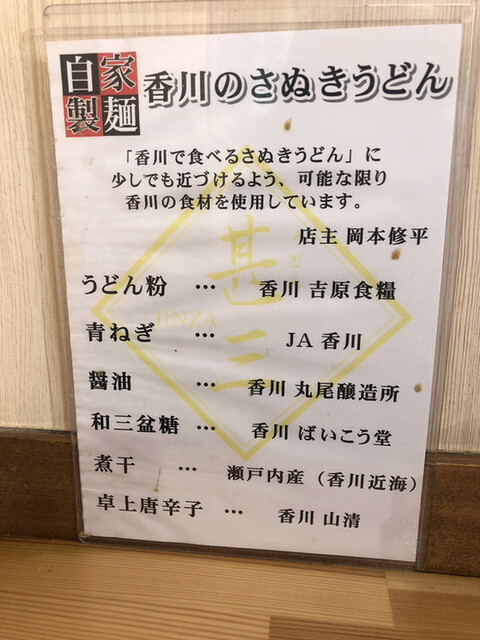 自家製麺
香川のさぬきうどん
「香川で食べるさぬきうどん」に
少しでも近づけるよう、可能な限り
香川の食材を使用しています。
店主 岡本修平
うどん粉 … 香川 吉原食糧
青ねぎ … JA 香川
醤油 … 香川 丸尾醸造所
和三盆糖 … 香川 ばいこう堂
煮干 … 瀬戸内産（香川近海）
卓上唐辛子 … 香川 山清
甚三
JINZA
うどん